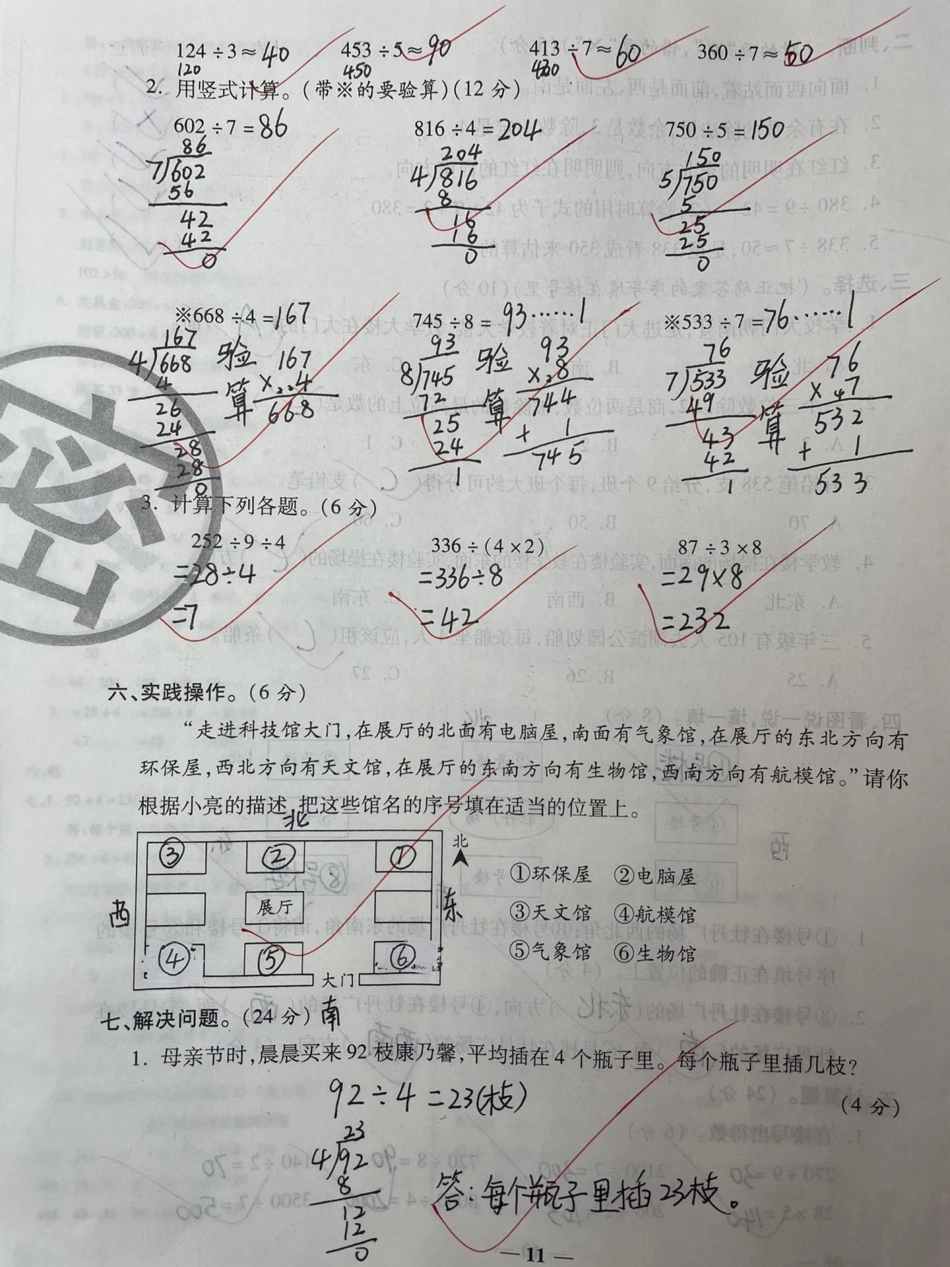 124÷3≈40 453÷5≈90 413÷7≈60 360÷7≈50
120 450 420
2. 用竖式计算。(带※的要验算)(12分)
602÷7=86 816÷4=204 750÷5=150
86 204 150
7/602 4/816 5/750
56 8 5
42 16 25
42 16 25
0 0 0
※668÷4=167 745÷8=93……1 ※533÷7=76……1
167 验算 167 93 验算 93 76 验算 76
4/668 ×224 8/745 ×28 7/533 ×47
4 668 72 744 49 532
26 25 + 1 43 + 1
24 24 745 42 533
28 1 1
28
0
3. 计算下列各题。(6分)
252÷9÷4 336÷(4×2) 87÷3×8
=28÷4 =336÷8 =29×8
=7 =42 =232
密
六、实践操作。(6分)
“走进科技馆大门,在展厅的北面有电脑屋,南面有气象馆,在展厅的东北方向有
环保屋,西北方向有天文馆,在展厅的东南方向有生物馆,西南方向有航模馆。”请你
根据小亮的描述,把这些馆名的序号填在适当的位置上。
北 北
③ ② ①
①环保屋 ②电脑屋
西 展厅 东
③天文馆 ④航模馆
④ ⑤ ⑥
⑤气象馆 ⑥生物馆
大门
南
七、解决问题。(24分)
1. 母亲节时,晨晨买来92枝康乃馨,平均插在4个瓶子里。每个瓶子里插几枝?
(4分)
92÷4=23(枝)
23
4/92
8
12
12
0
答:每个瓶子里插23枝。
— 11 —